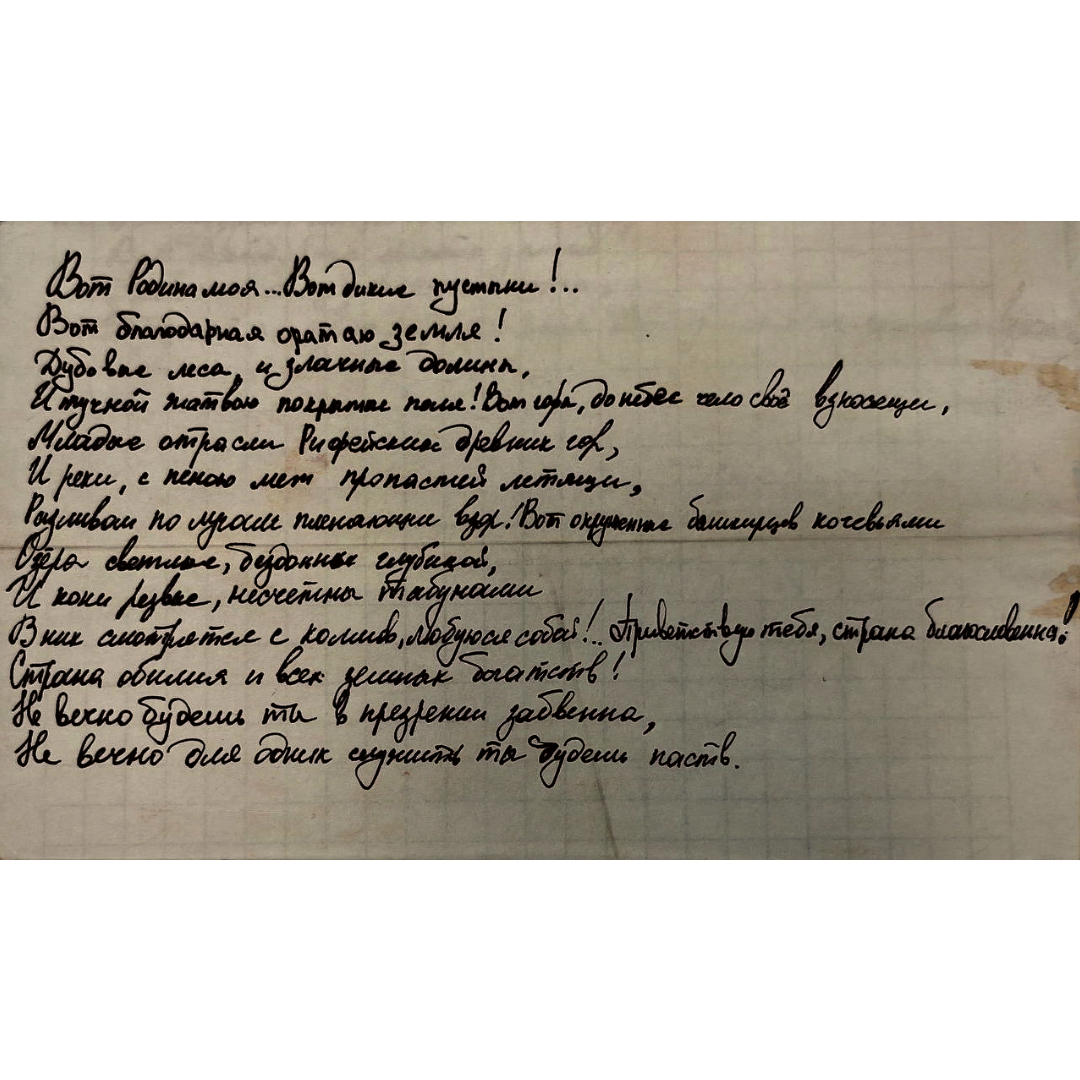 Вот Родина моя... Вот дикие пустыни!..
Вот благодарная оратаю земля!
Дубовые леса, и злачные долины,
И тучной жатвою покрытые поля! Вот горы, до небес чело своё взносящи,
Младые отрасли Рифейских древних гор,
И реки, с пеною меж пропастей летящи,
Разливом по лугам пленяющи взор! Вот окруженные башкирцев кочевьями
Озёра светлые, бездонных глубиной,
И кони резвые, несчетны табунами
В них смотрятся с холмов, любуюся собой!.. Приветствую тебя, страна благословенна!
Страна обилия и всех земных богатств!
Не вечно будешь ты в презрении забвенна,
Не вечно для одних служить ты будешь паств.